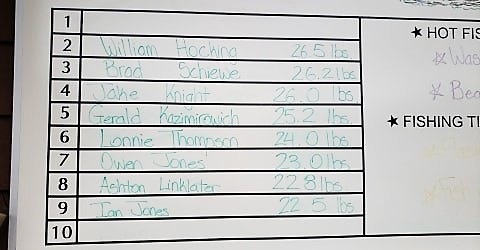 1
2 William Hocking 26.5 lbs.
3 Brad Schiewe 26.2 lbs
4 Jake Knight 26.0 lbs.
5 Gerald Kazimirowich 25.2 lbs.
6 Lonnie Thompson 24.0 lbs.
7 Owen Jones 23.0 lbs.
8 Ashton Linklater 22.8 lbs
9 Ian Jones 22.5 lbs
10
★ HOT FIS
Was
Bea
★ FISHING TI